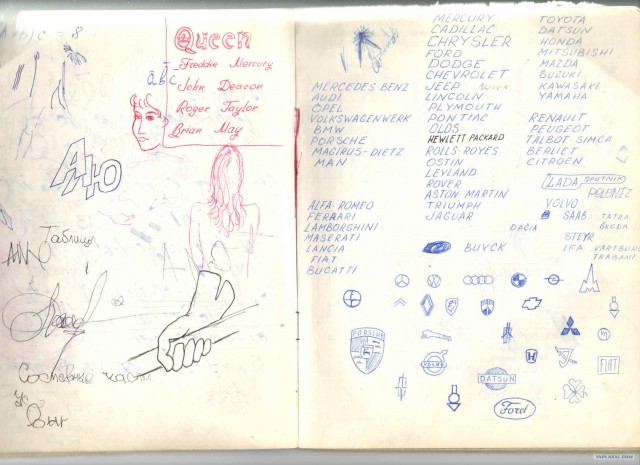 = 8
Queen
Freddie Mercury
John Deacon
Roger Taylor
Brian May
Таблицы
MERCEDES BENZ
AUDI
OPEL
VOLKSWAGENWERK
BMW
PORSCHE
MAGIRUS-DIETZ
MAN
ALFA-ROMEO
FERRARI
LAMBORGHINI
MASERATI
LANCIA
FIAT
BUGATTI
MERCURY
CADILLAC
CHRYSLER
FORD
DODGE
CHEVROLET
JEEP BUICK
LINCOLN
PLYMOUTH
PONTIAC
OLDS
HEWLETT PACKARD
ROLLS ROYES
OSTIN
LEYLAND
ROVER
ASTON MARTIN
TRIUMPH
JAGUAR
BUYCK
TOYOTA
DATSUN
HONDA
MITSUBISHI
MAZDA
SUZUKI
KAWASAKI
YAMAHA
RENAULT
PEUGEOT
TALBOT-SIMCA
BERLIET
CITROEN
LADA SPUTNIK
POLONEZ
VOLVO
SAAB TATRA
DACIA ŠKODA
STEYR
IFA WARTBURG
TRABANT
PORSCHE
VOLVO
DATSUN
FIAT
Ford